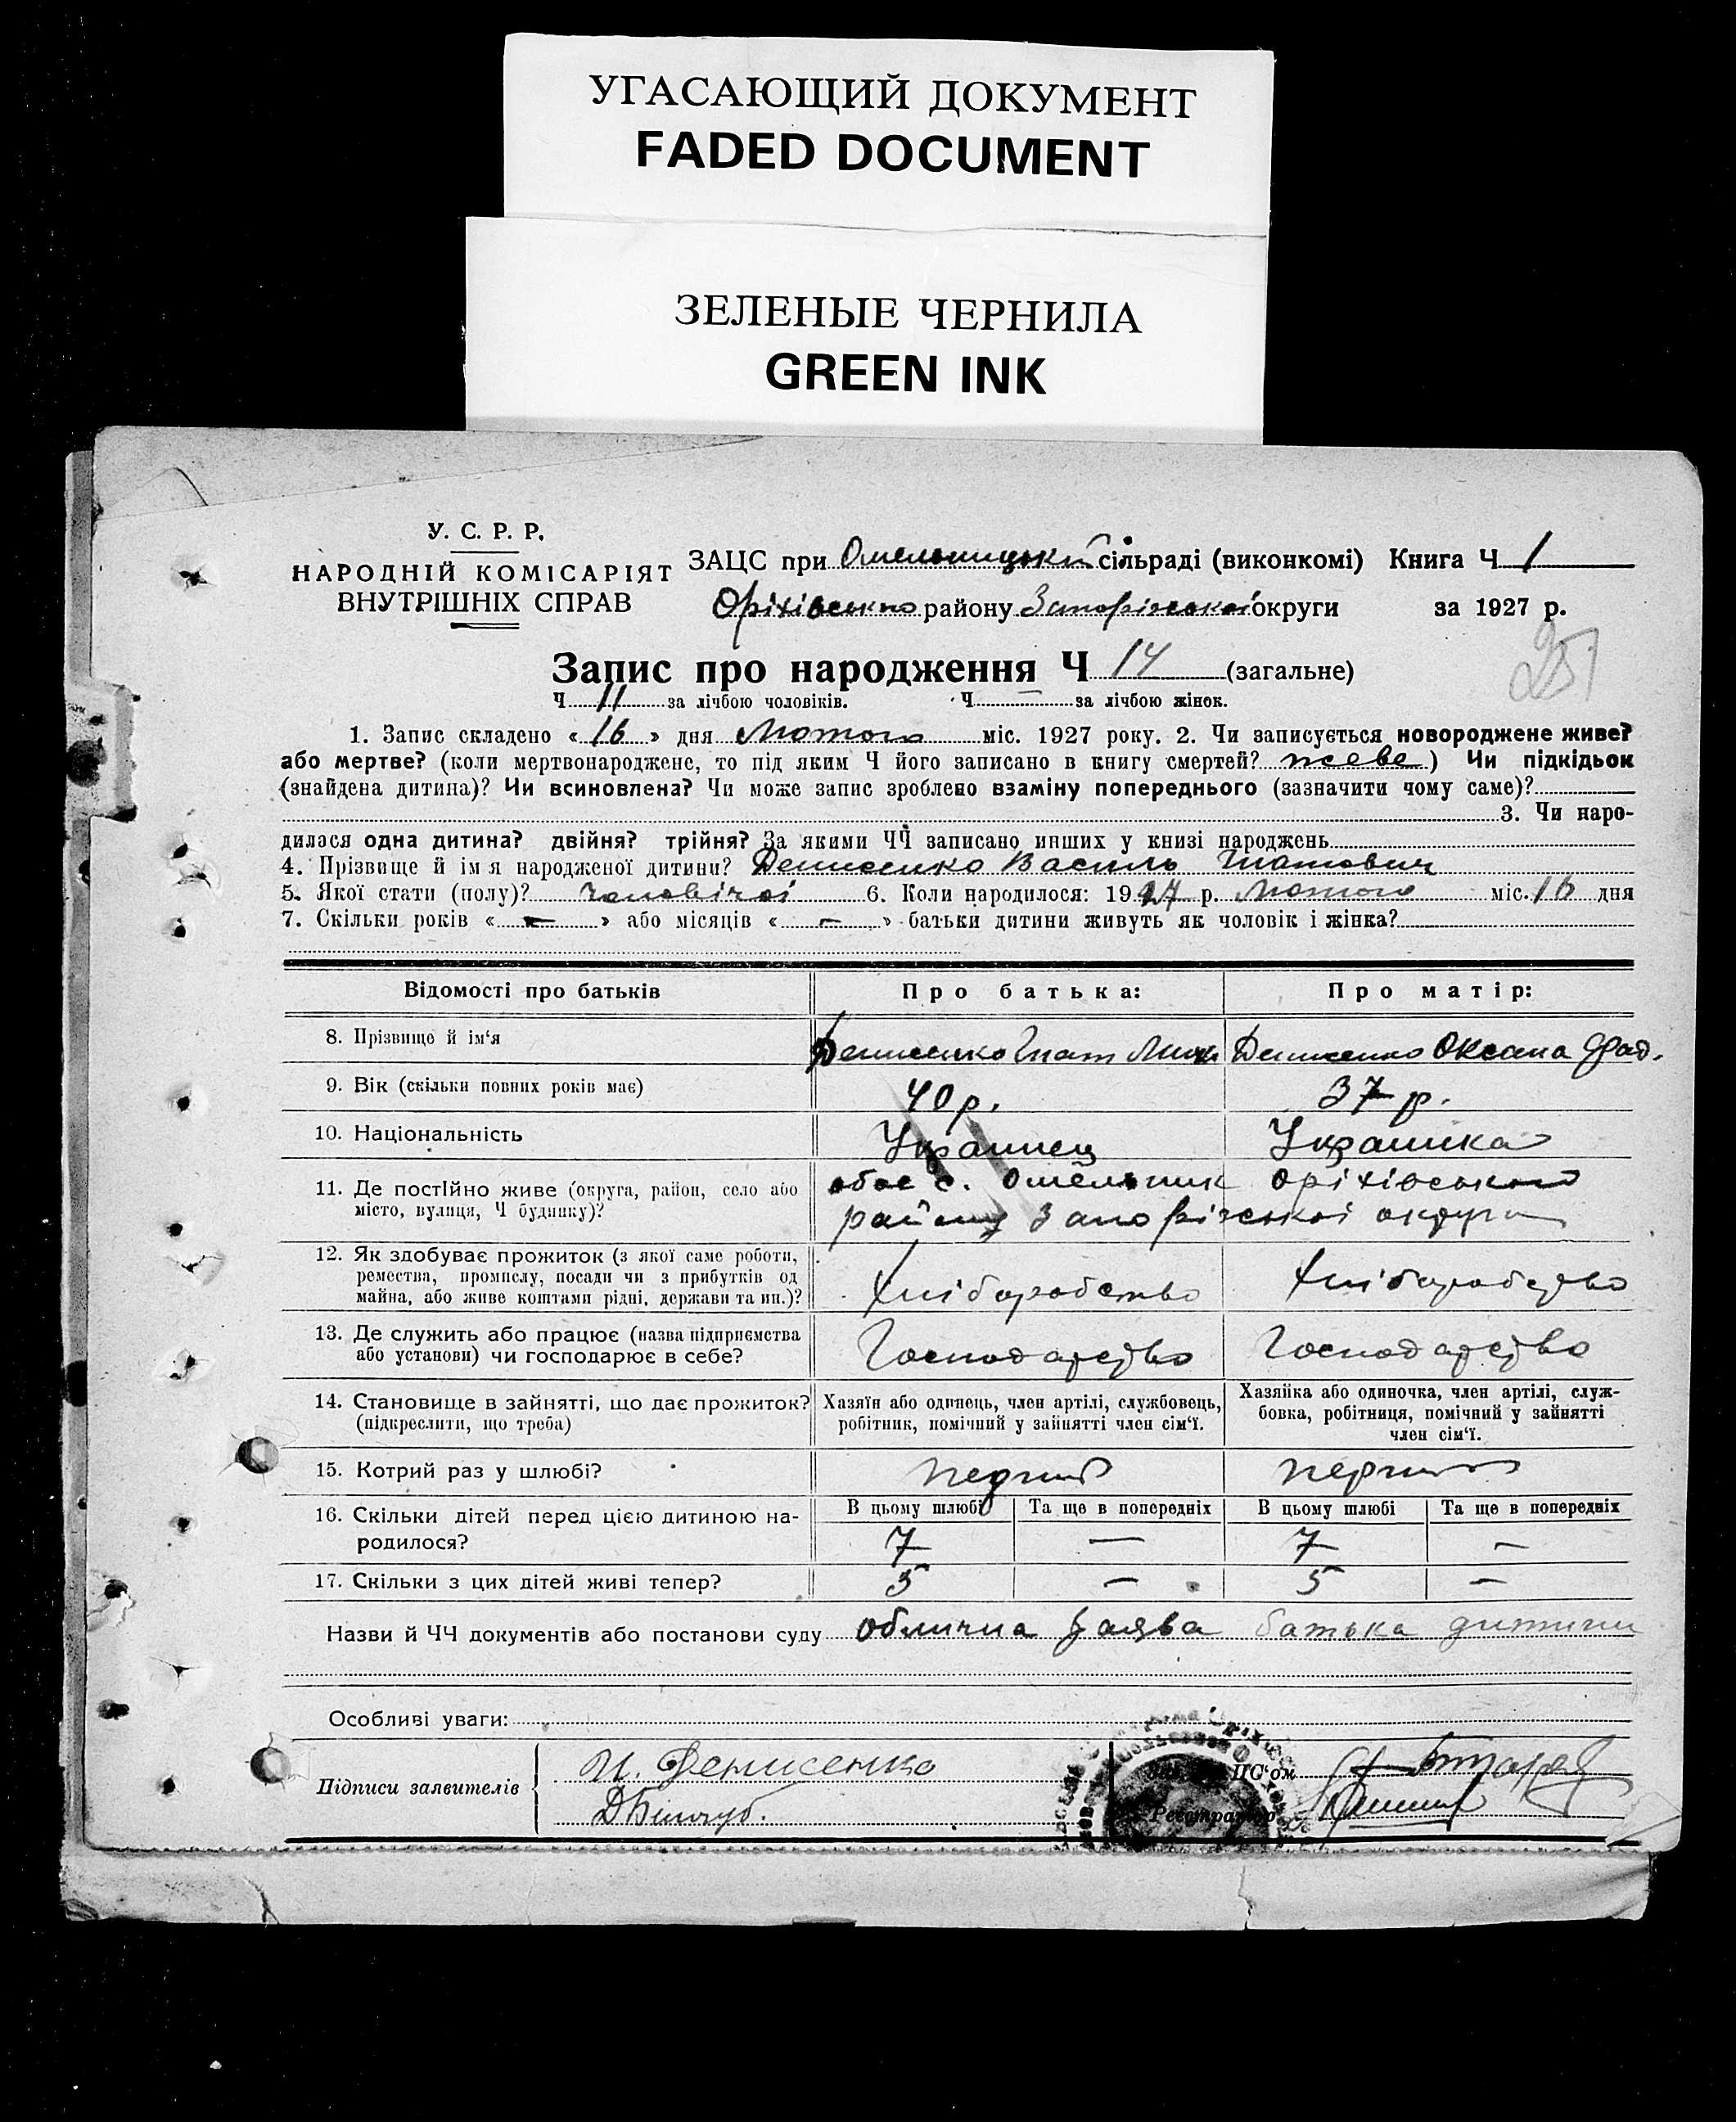 УГАСАЮЩИЙ ДОКУМЕНТ
FADED DOCUMENT
ЗЕЛЕНЫЕ ЧЕРНИЛА
GREEN INK
У. С. Р. Р.
НАРОДНІЙ КОМІСАРІЯТ
ВНУТРІШНІХ СПРАВ
ЗАЦС при Омельницькій сільраді (виконкомі) Книга Ч 1
Оріхівського району Запорізької округи за 1927 р.
251
Запис про народження Ч 14 (загальне)
Ч 11 за лічбою чоловіків. Ч — за лічбою жінок.
1. Запис складено « 16 » дня Лютого міс. 1927 року. 2. Чи записується новороджене живе?
або мертве? (коли мертвонароджене, то під яким Ч його записано в книгу смертей? живе) Чи підкідьок
(знайдена дитина)? Чи всиновлена? Чи може запис зроблено взаміну попереднього (зазначити чому саме)?
3. Чи наро-
дилася одна дитина? двійня? трійня? За якими ЧЧ записано инших у книзі народжень
4. Прізвище й ім'я народженої дитини? Денисенко Василь Гнатович
5. Якої стати (полу)? чоловічої 6. Коли народилося: 1927 р. Лютого міс. 16 дня
7. Скільки років « — » або місяців « — » батьки дитини живуть як чоловік і жінка?
Відомості про батьків Про батька: Про матір:
8. Прізвище й ім'я Денисенко Гнат Денисенко Оксана
9. Вік (скільки повних років має) 40 р. 37 р.
10. Національність Українец Українка
11. Де постійно живе (округа, район, село або
місто, вулиця, Ч будинку)?
обоє с. Омельник Оріхівського
району Запорізької округи
12. Як здобуває прожиток (з якої саме роботи,
ремества, промислу, посади чи з прибутків од
майна, або живе коштами рідні, держави та ин.)?
Хліборобство Хліборобство
13. Де служить або працює (назва підприємства
або установи) чи господарює в себе?
Господарство Господарство
14. Становище в зайнятті, що дає прожиток?
(підкреслити, що треба)
Хазяїн або одинець, член артілі, службовець,
робітник, помічний у зайнятті член сім'ї.
Хазяйка або одиночка, член артілі, служ-
бовка, робітниця, помічний у зайнятті
член сім'ї.
15. Котрий раз у шлюбі? перший перший
16. Скільки дітей перед цією дитиною на-
родилося?
В цьому шлюбі Та ще в попередніх В цьому шлюбі Та ще в попередніх
7 — 7 —
17. Скільки з цих дітей живі тепер? 5 — 5 —
Назви й ЧЧ документів або постанови суду облична заява батька дитини
Особливі уваги:
Підписи заявителів
И. Денисенко
ЦС'ом
Реєстратор